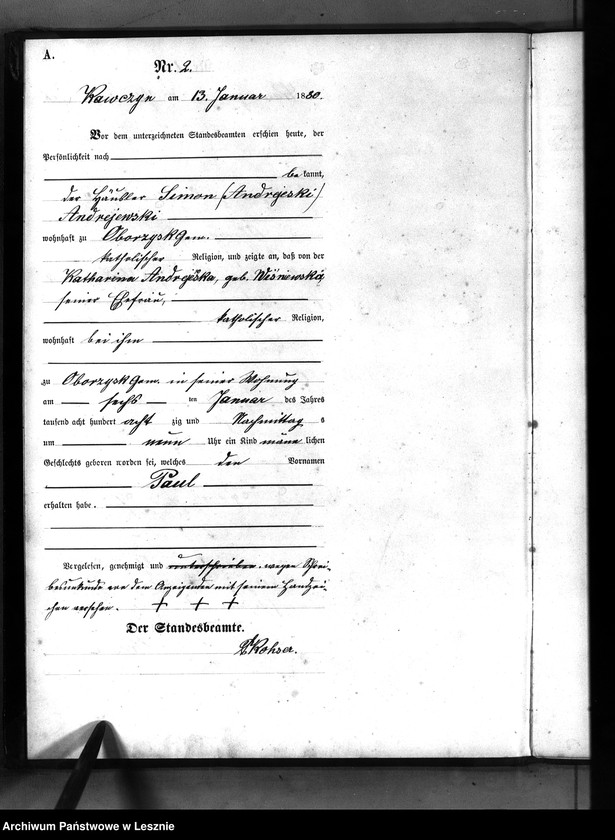 A.
Nr. 2.
Kawczyn am 13. Januar 1880.
Vor dem unterzeichneten Standesbeamten erschien heute, der
Persönlichkeit nach
bekannt,
der Häusler Simon (Andrzeski)
Andrejewski
wohnhaft zu Oborzysk Gem.
katholischer Religion, und zeigte an, daß von der
Katharina geb. Wisniewska,
seiner Ehefrau,
katholischer Religion,
wohnhaft bei ihm
zu Oborzysk Gem. in seiner Wohnung
am sechs ten Januar des Jahres
tausend acht hundert acht zig und Nachmittag s
um neun Uhr ein Kind männ lichen
Geschlechts geboren worden sei, welches den Vornamen
Paul
erhalten habe.
Vorgelesen, genehmigt und unterschrieben. wegen Schrei-
bensunkunde von dem Anzeigenden mit seinem Handzei-
chen versehen. + + +
Der Standesbeamte.
Archiwum Państwowe w Lesznie